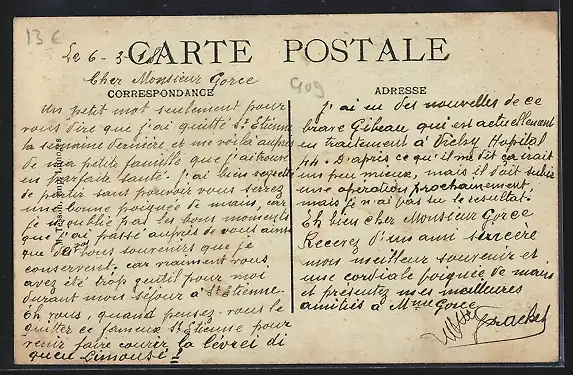 13 €
Le 6 - 3 - 18
CARTE POSTALE
Cher Monsieur Gorce
CORRESPONDANCE
Un petit mot seulement pour
vous dire que j'ai quitté St Etienne
la semaine dernière et me voilà auprès
de ma petite famille que j'ai trouvé
en parfaite santé. J'ai bien regretté
de partir sans pouvoir vous serrez
une bonne poignée de mains, car
je n'oublie pas les bons moments
que j'ai passé auprès de vous ainsi
que de bons souvenirs que je
conservent. car vraiment vous
avez été trop gentil pour moi
durant mon séjour à St Etienne.
Eh vous, quand pensez-vous le
quitter ce fameux St Etienne pour
venir faire courir la lévrei di
queu Limousi !
ADRESSE
J'ai eu des nouvelles de ce
brave Gibeau qui est actuellement
en traitement à Vichy Hopital
44. D'après ce qu'il me dit ça irait
un peu mieux, mais il doit subir
une opération prochainement,
mais je n'ai pas su le resultat.
Eh bien cher Monsieur Gorce
Recevez d'un ami sincère
mon meilleur souvenir et
une cordiale poignée de mains
et présentez mes meilleures
amitiés à Mme Gorce